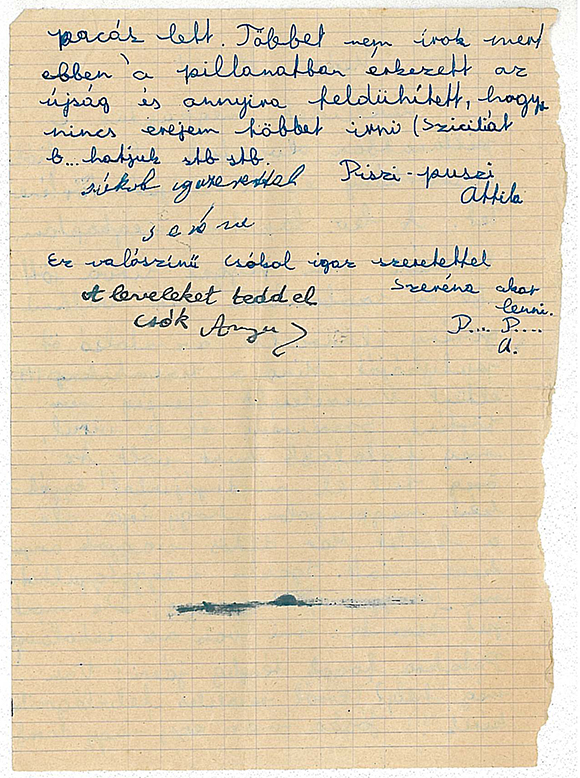 pacás lett. Többet nem írok mert
ebben a pillanatban érkezett az
újság és annyira feldühített, hogy
nincs erejem többet irni (Sziciliát
b... hatjuk stb stb.
Piszi-puszi
Attila
Ez valószínű csókol igaz szeretettel
Szeréna akar
lenni.
P... P....
A.
A leveleket tedd el
Csók Anyu